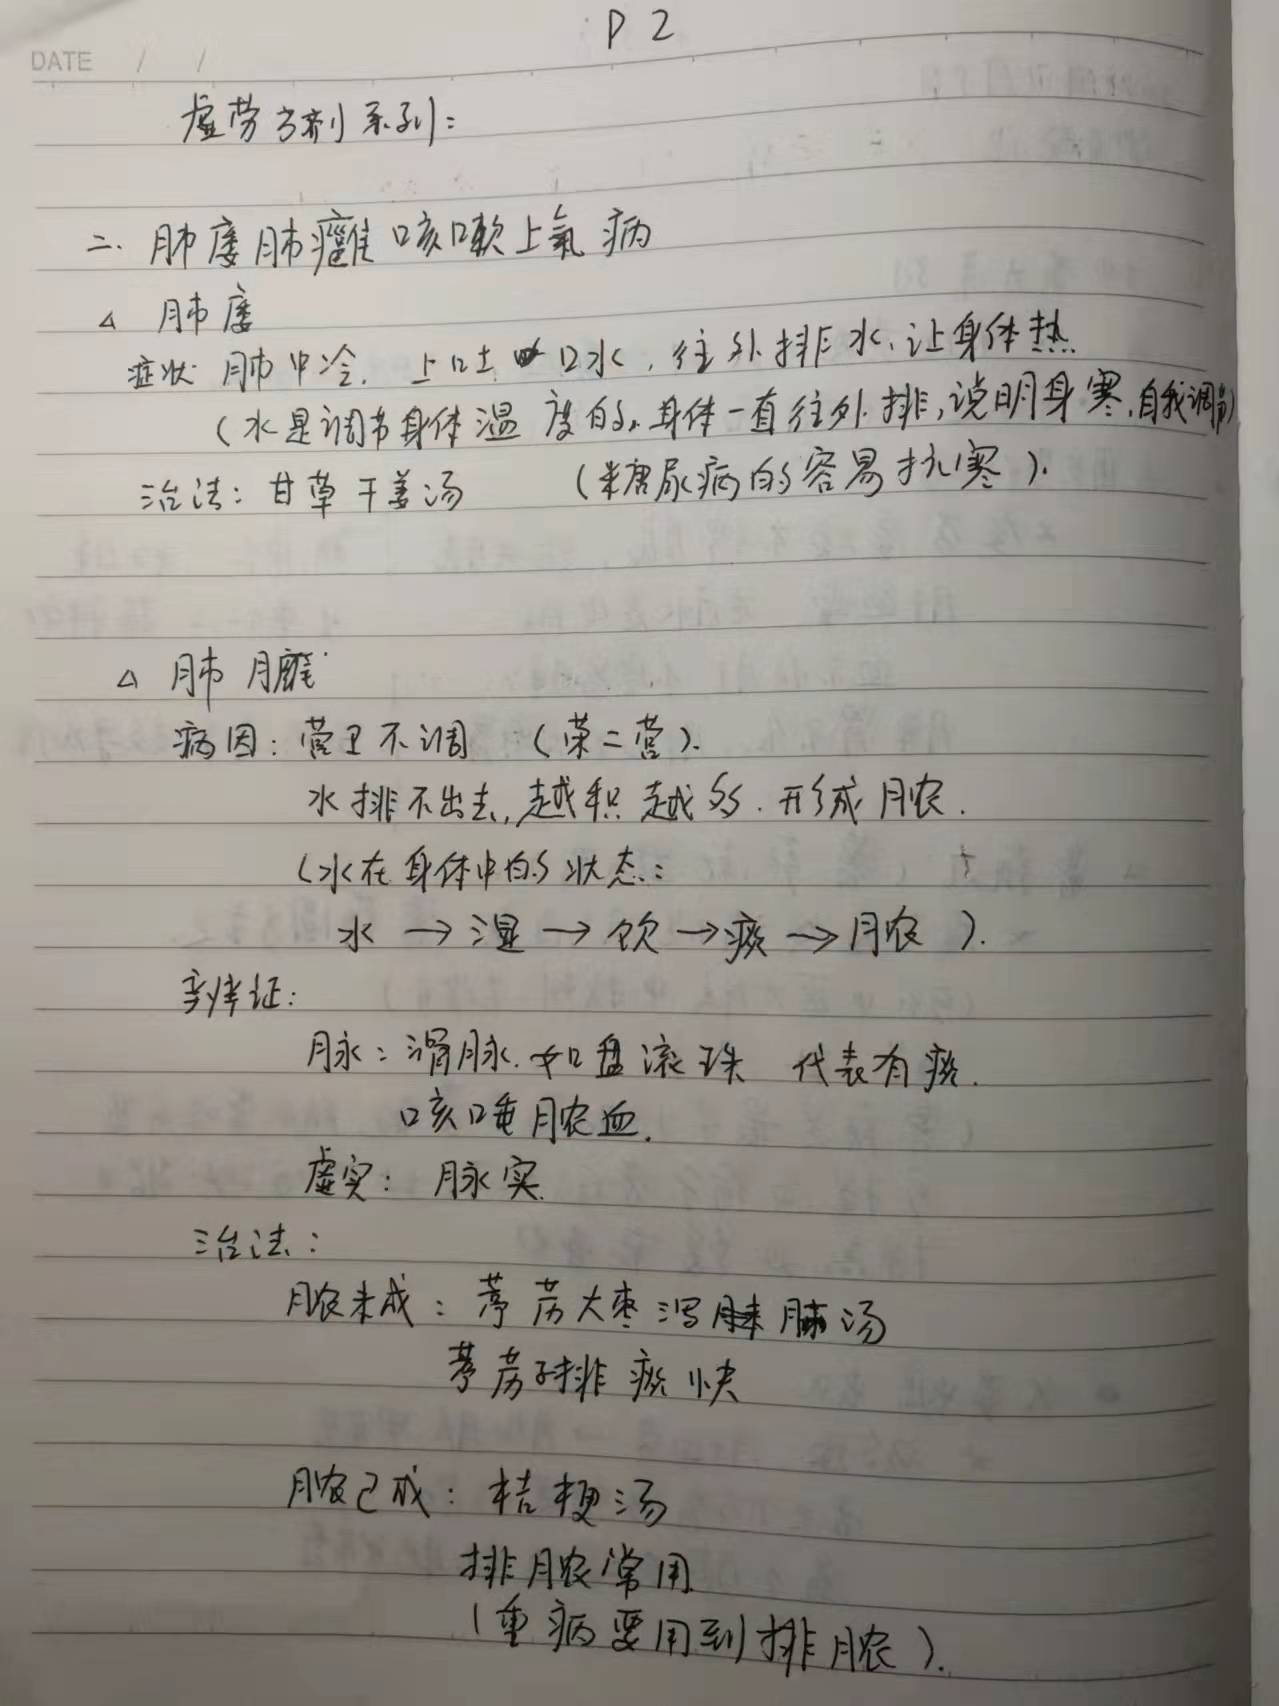 P 2
DATE / /
虚劳方剂系列：
二、肺痿肺癰咳嗽上氣病
△ 肺痿
症状 肺中冷，上吐口水，往外排水，让身体热
（水是调节身体温度的，身体一直往外排，说明身寒，自我调节）
治法：甘草干姜汤 （糖尿病的容易抗寒）.
△ 肺臃
病因：营卫不调 （荣=营）.
水排不出去，越积越多，形成脓.
（水在身体中的状态：
水→湿→饮→痰→脓 ）.
辨证：
脉：滑脉，如盘滚珠 代表有痰.
咳唾脓血.
虚实：脉实.
治法：
脓未成：葶苈大枣泻肺汤
葶苈子排痰快
脓已成：桔梗汤
排脓常用
（重病要用到排脓）.